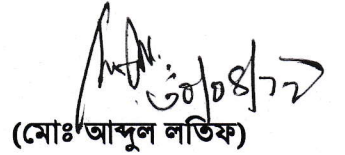 ৩০/০৪/২২
(মোঃ আব্দুল লতিফ)